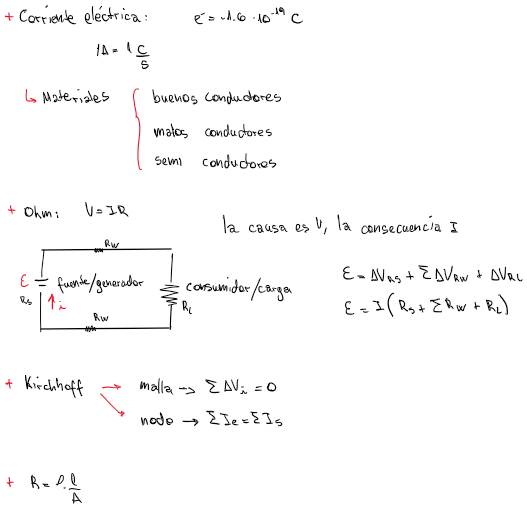 + Corriente eléctrica: e⁻ = -1.6 · 10⁻¹⁹ C
1A = 1 C/s
↳ Materiales
buenos conductores
malos conductores
semi conductores
+ Ohm: V = IR
la causa es V, la consecuencia I
Rw
ε fuente/generador
Rs i
consumidor/carga
RL
Rw
ε = ΔVRs + ΣΔVRw + ΔVRL
ε = I (Rs + ΣRw + RL)
+ Kirchhoff → malla → ΣΔVi = 0
nodo → ΣIe = ΣIs
+ R = ρ · l/A